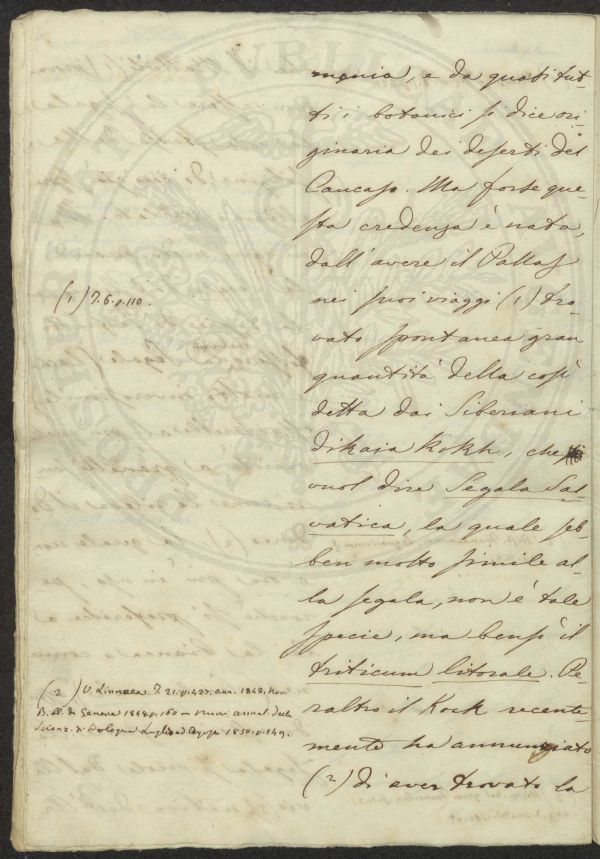 mania, e da quasi tut-
ti i botanici si dice ori-
ginaria dei deserti del
Caucaso. Ma forse que-
sta credenza è nata,
dall' avere il Pallas
(1) T. 6. p. 110.
nei suoi viaggi (1) tro-
vato spontanea gran
quantità della così
detta dai Siberiani
dikaia Rokh, che
vuol dire Segala Sal-
vatica, la quale seb-
ben molto simile al-
la segala, non è tale
specie, ma bensì il
triticum litorale. Pe-
raltro il Kock recente-
mente ha annunziato
(2) di aver trovato la
(2) V. Linnaea T. 21. p. 427. ann. 1848.
de Geneve 1848. p. 160 = Nuovi annal. delle
Scienz. di Bologna Luglio ed 1850. p. 149.